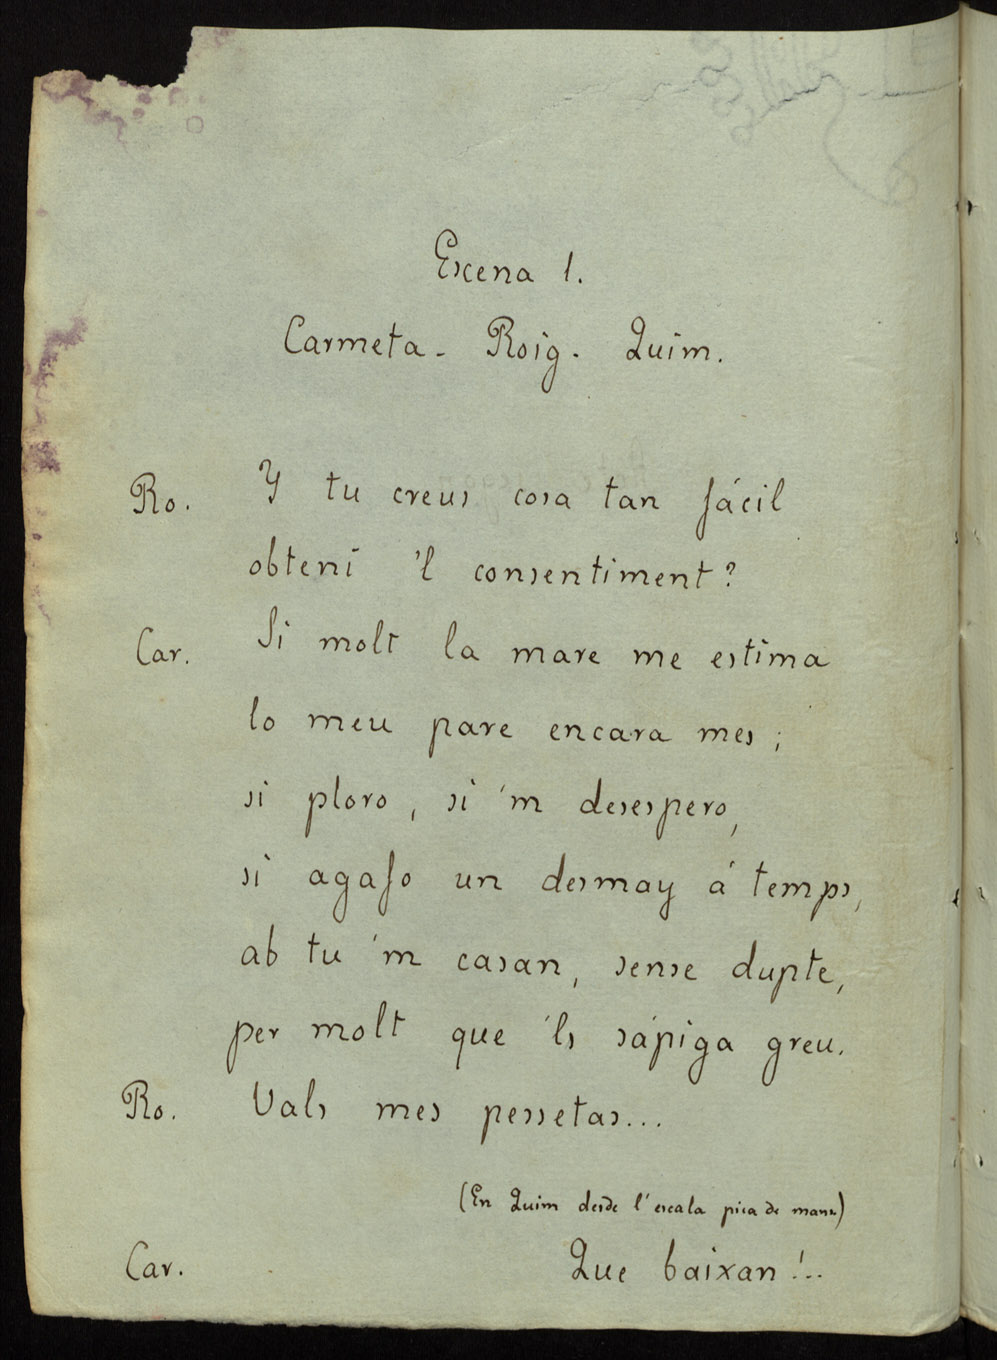 Escena 1.
Carmeta - Roig - Quim.
Ro. Y tu creus cosa tan fácil
obtení 'l consentiment?
Car. Si molt la mare me estima
lo meu pare encara mes;
si ploro, si 'm desespero,
si agafo un desmay á temps,
ab tu 'm casan, sense dupte,
per molt que 'ls sápiga greu.
Ro. Vals mes pessetas...
(En Quim desde l' escala pica de mans)
Car. Que baixan!..